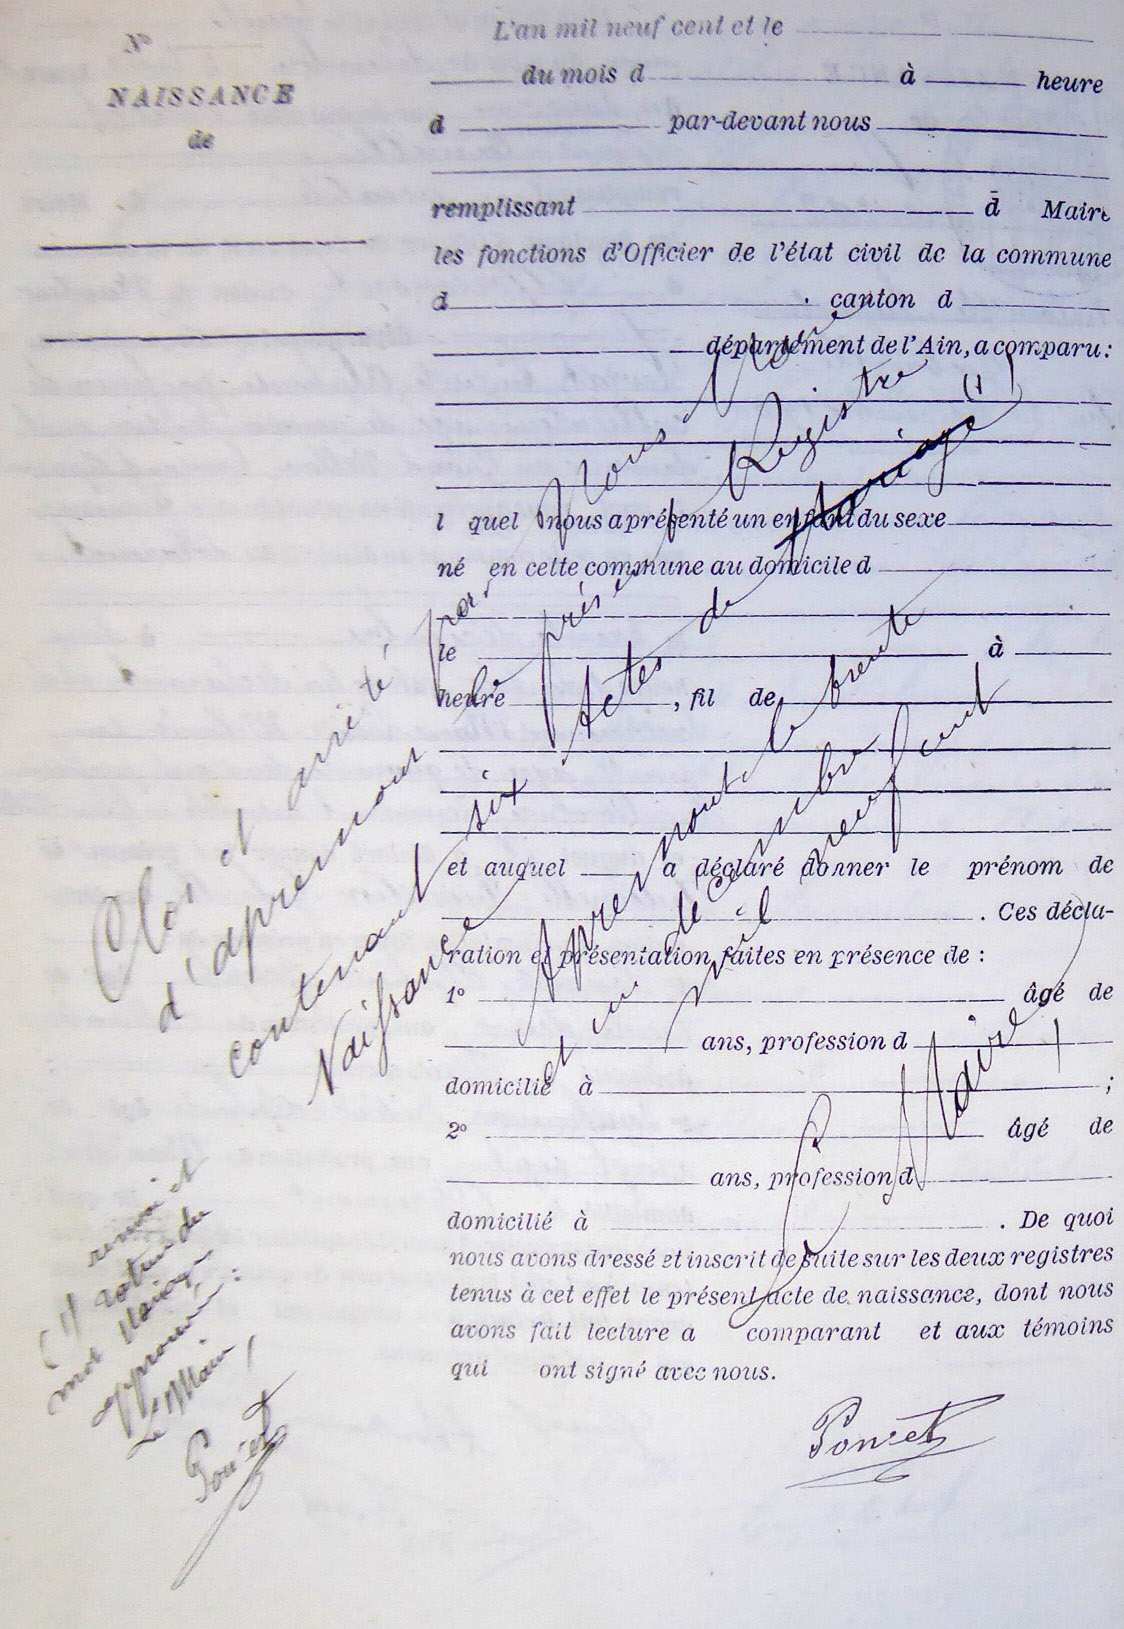 N°
NAISSANCE
de
L'an mil neuf cent et le
du mois d à heure
d par-devant nous
remplissant d Maire
les fonctions d'Officier de l'état civil de la commune
d canton d
département de l'Ain, a comparu:
l quel nous a présenté un enfant du sexe
né en cette commune au domicile d
le à
heure , fil de
et auquel a déclaré donner le prénom de
. Ces décla-
ration et présentation faites en présence de :
1° âgé de
ans, profession d
domicilié à ;
2° âgé de
ans, profession d
domicilié à . De quoi
nous avons dressé et inscrit de suite sur les deux registres
tenus à cet effet le présent acte de naissance, dont nous
avons fait lecture a comparant et aux témoins
qui ont signé avec nous.
Clos et arrêté par Nous Maire
d'apremont le présent Registre
contenant six Actes de Mariage (1)
Naissance
Apremont le trente
et un décembre
mil neuf cent
Le Maire,
Poncet
(1) renvoi et
rature du
mot Mariage
approuvé :
Le Maire,
Poncet